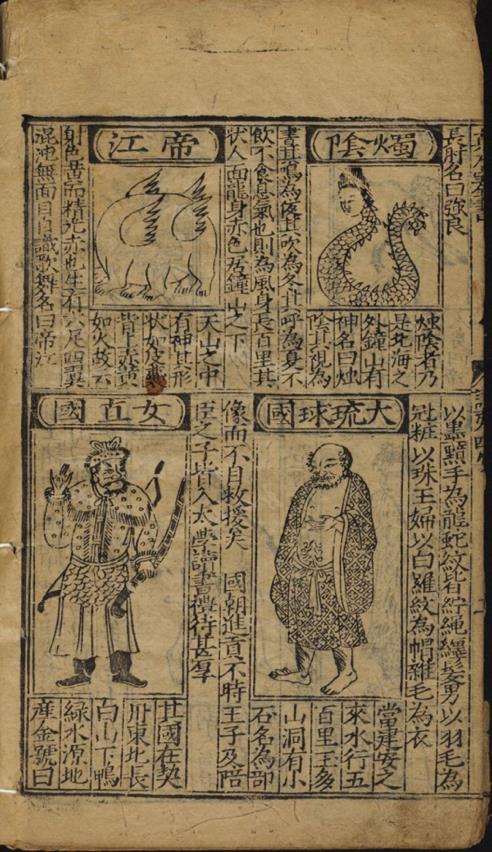 長肘名曰強良
燭陰
烛陰者乃
是北海之
外鐘山有
神名曰烛
陰其視為
晝其為夜其吹為冬其呼為夏不
飲不食息氣也則為風身長百里其
状人面龍身赤色居鐘山之下
帝江
天山之中
有神其形
状如皮囊
背上赤黃
如火故云
色黃而精光赤也生有六足四翼
混沌無面目自識歌舞名曰帝江
以墨黥手為龍蛇紋皆紵縄纏髪男以羽毛為
冠粧以珠玉婦以白羅紋為帽雜毛為衣
大琉球國
當建安之
來水行五
百里王多
山洞有小
石名為部
像而不自救援矣 國朝進貢不時王子及陪
臣之子皆入太學讀書禮待甚厚
女直國
其國在契
丹東北長
白山下鴨
綠水源地
産金號曰